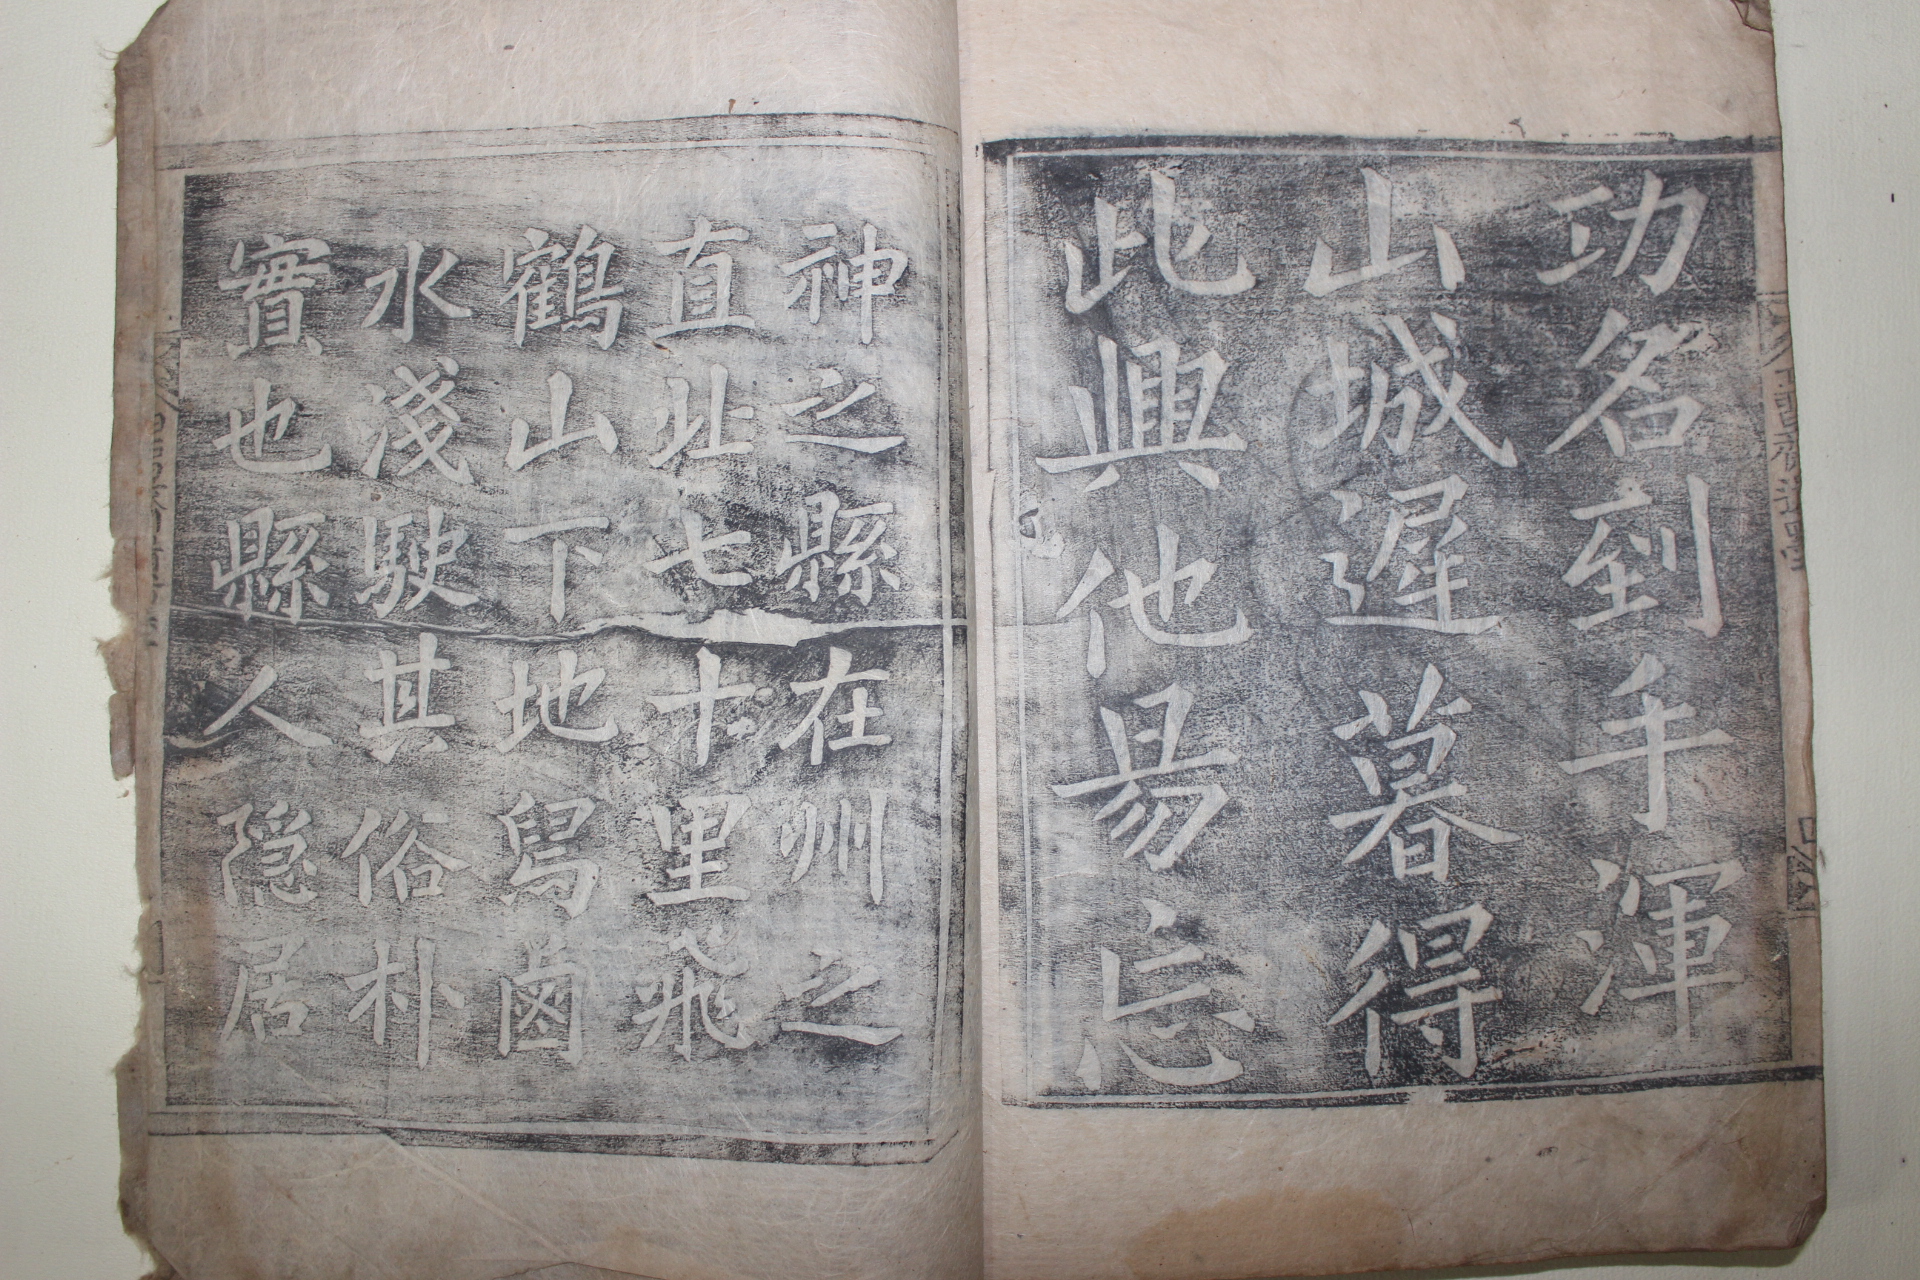 功名到手渾
山城遲暮得
此興他易忘
神之縣在州之
直北七十里飛
鶴山下地舄鹵
水淺駛其俗朴
實也縣人隱居